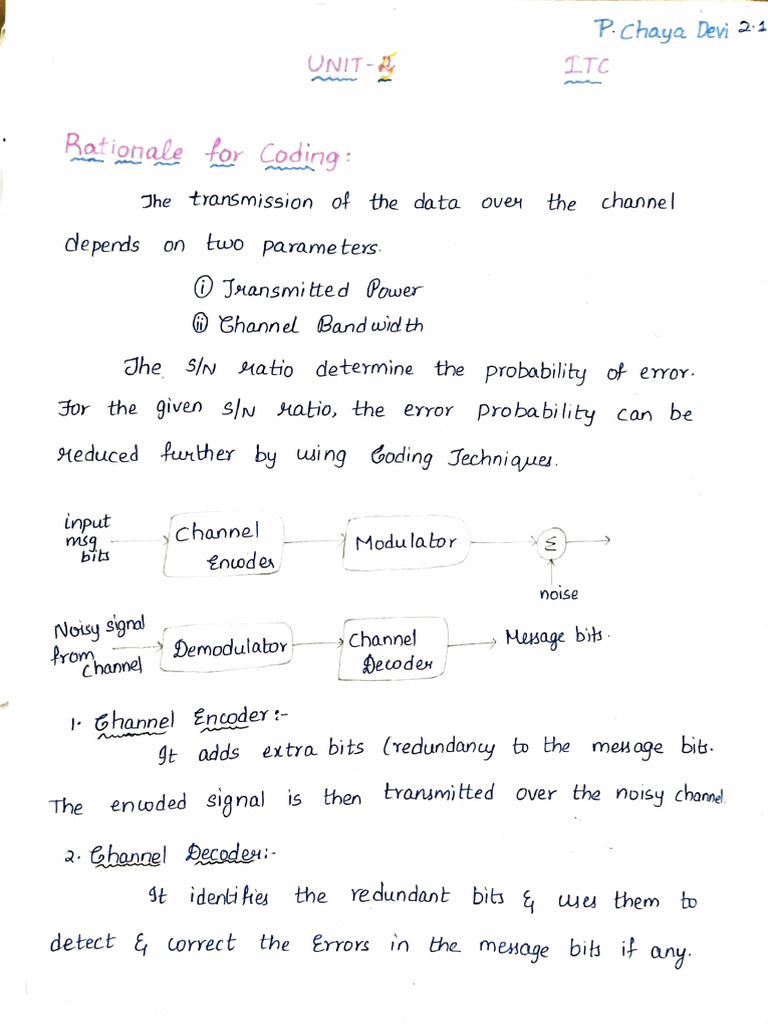 P. Chaya Devi 2.1
UNIT-
ITC
Rationale for Coding:
The transmission of the data over the channel
depends on two parameters.
(i) Transmitted Power
(ii) Channel Bandwidth
The S/N ratio determine the probability of error.
For the given S/N ratio, the error probability can be
reduced further by using Coding Techniques.
input
msg
bits
Channel
Encoder
Modulator
Σ
noise
Noisy signal
from
channel
Demodulator
Channel
Decoder
Message bits.
1. Channel Encoder:-
It adds extra bits (redundancy to the message bits.
The encoded signal is then transmitted over the noisy channel.
2. Channel Decoder:-
It identifies the redundant bits & uses them to
detect & correct the Errors in the message bits if any.